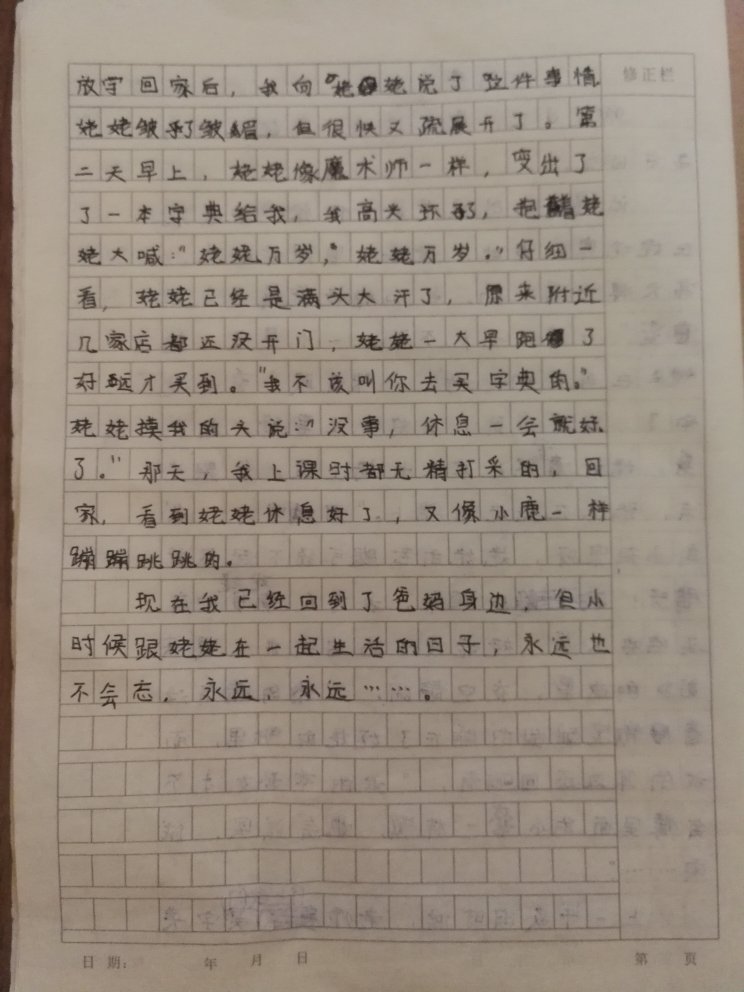 放学回家后，我向姥姥说了整件事情
修正栏
姥姥皱了皱眉，但很快又疏展开了。第
二天早上，姥姥像魔术师一样，变出了
了一本字典给我，我高兴坏了，抱着姥
姥大喊：“姥姥万岁，”姥姥万岁。”仔细一
看，姥姥已经是满头大汗了，原来附近
几家店都还没开门，姥姥一大早跑了
好远才买到。“我不该叫你去买字典的。”
姥姥摸我的头说：“没事，休息一会就好
了。”那天，我上课时都无精打采的，回
家，看到姥姥休息好了，又像小鹿一样
蹦蹦跳跳的。
现在我已经回到了爸妈身边，但小
时候跟姥姥在一起生活的日子，永远也
不会忘，永远，永远……。
日期： 年 月 日 第 页